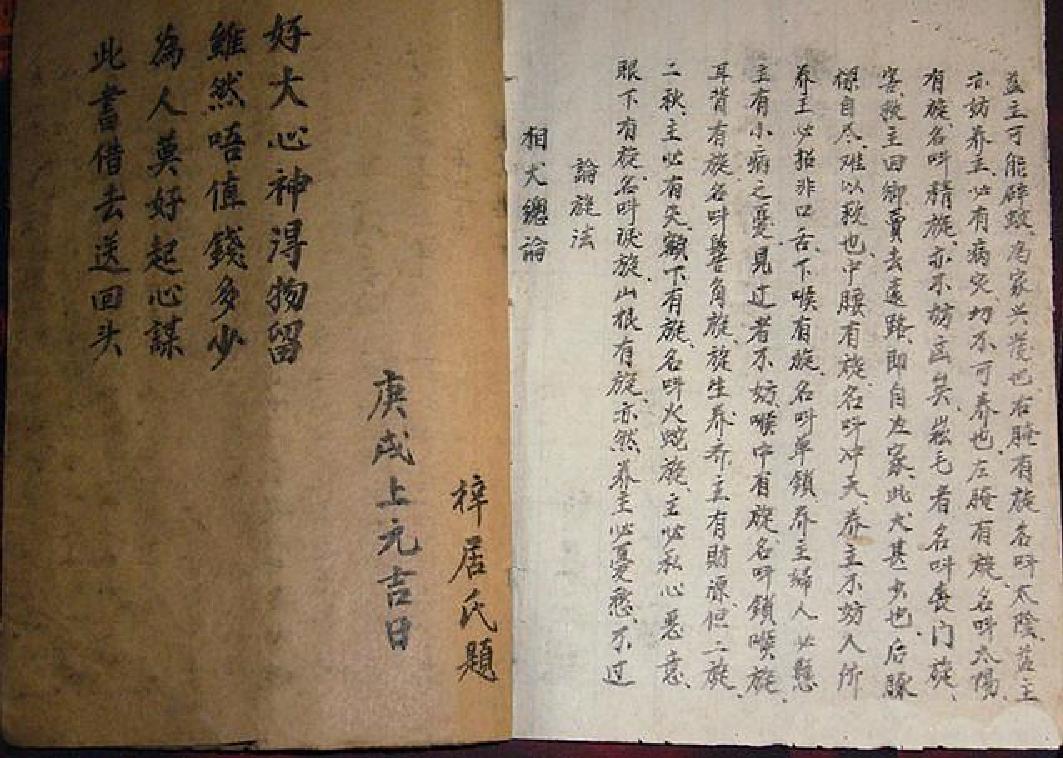 此書借去送回头
為人莫好起心謀
雖然唔值錢多少
好大心神淂物留
庚戌上元吉日
梓居氏題
相犬總論
論旋法
眼下有旋、名叫旋、山根有旋、亦然养主必憂愁、不过
二秋、主必有灾、額下有旋、名叫火蛇旋、主必私心恶意、
耳背有旋、名叫角旋、旋生养养主有財源、但二旋、
主有小病之憂、見过者不妨、喉中有旋、名叫鎖喉旋、
养主必招非口舌、下喉有旋、名叫单鎖养主婦人必懸
樑自尽、难以救也、中腰有旋、名叫冲天、养主不妨入所
害、救主回鄉、賣去遠路、即自左家、此犬甚少也、后豚
有旋、名叫精旋、亦不妨凶矣、崧毛者名叫丧门旋、
亦妨养主必有病灾、切不可养也、左腌有旋、名叫太陽、
益主可能辟為家兴旺也、右腌有旋、名叫太陰、益主